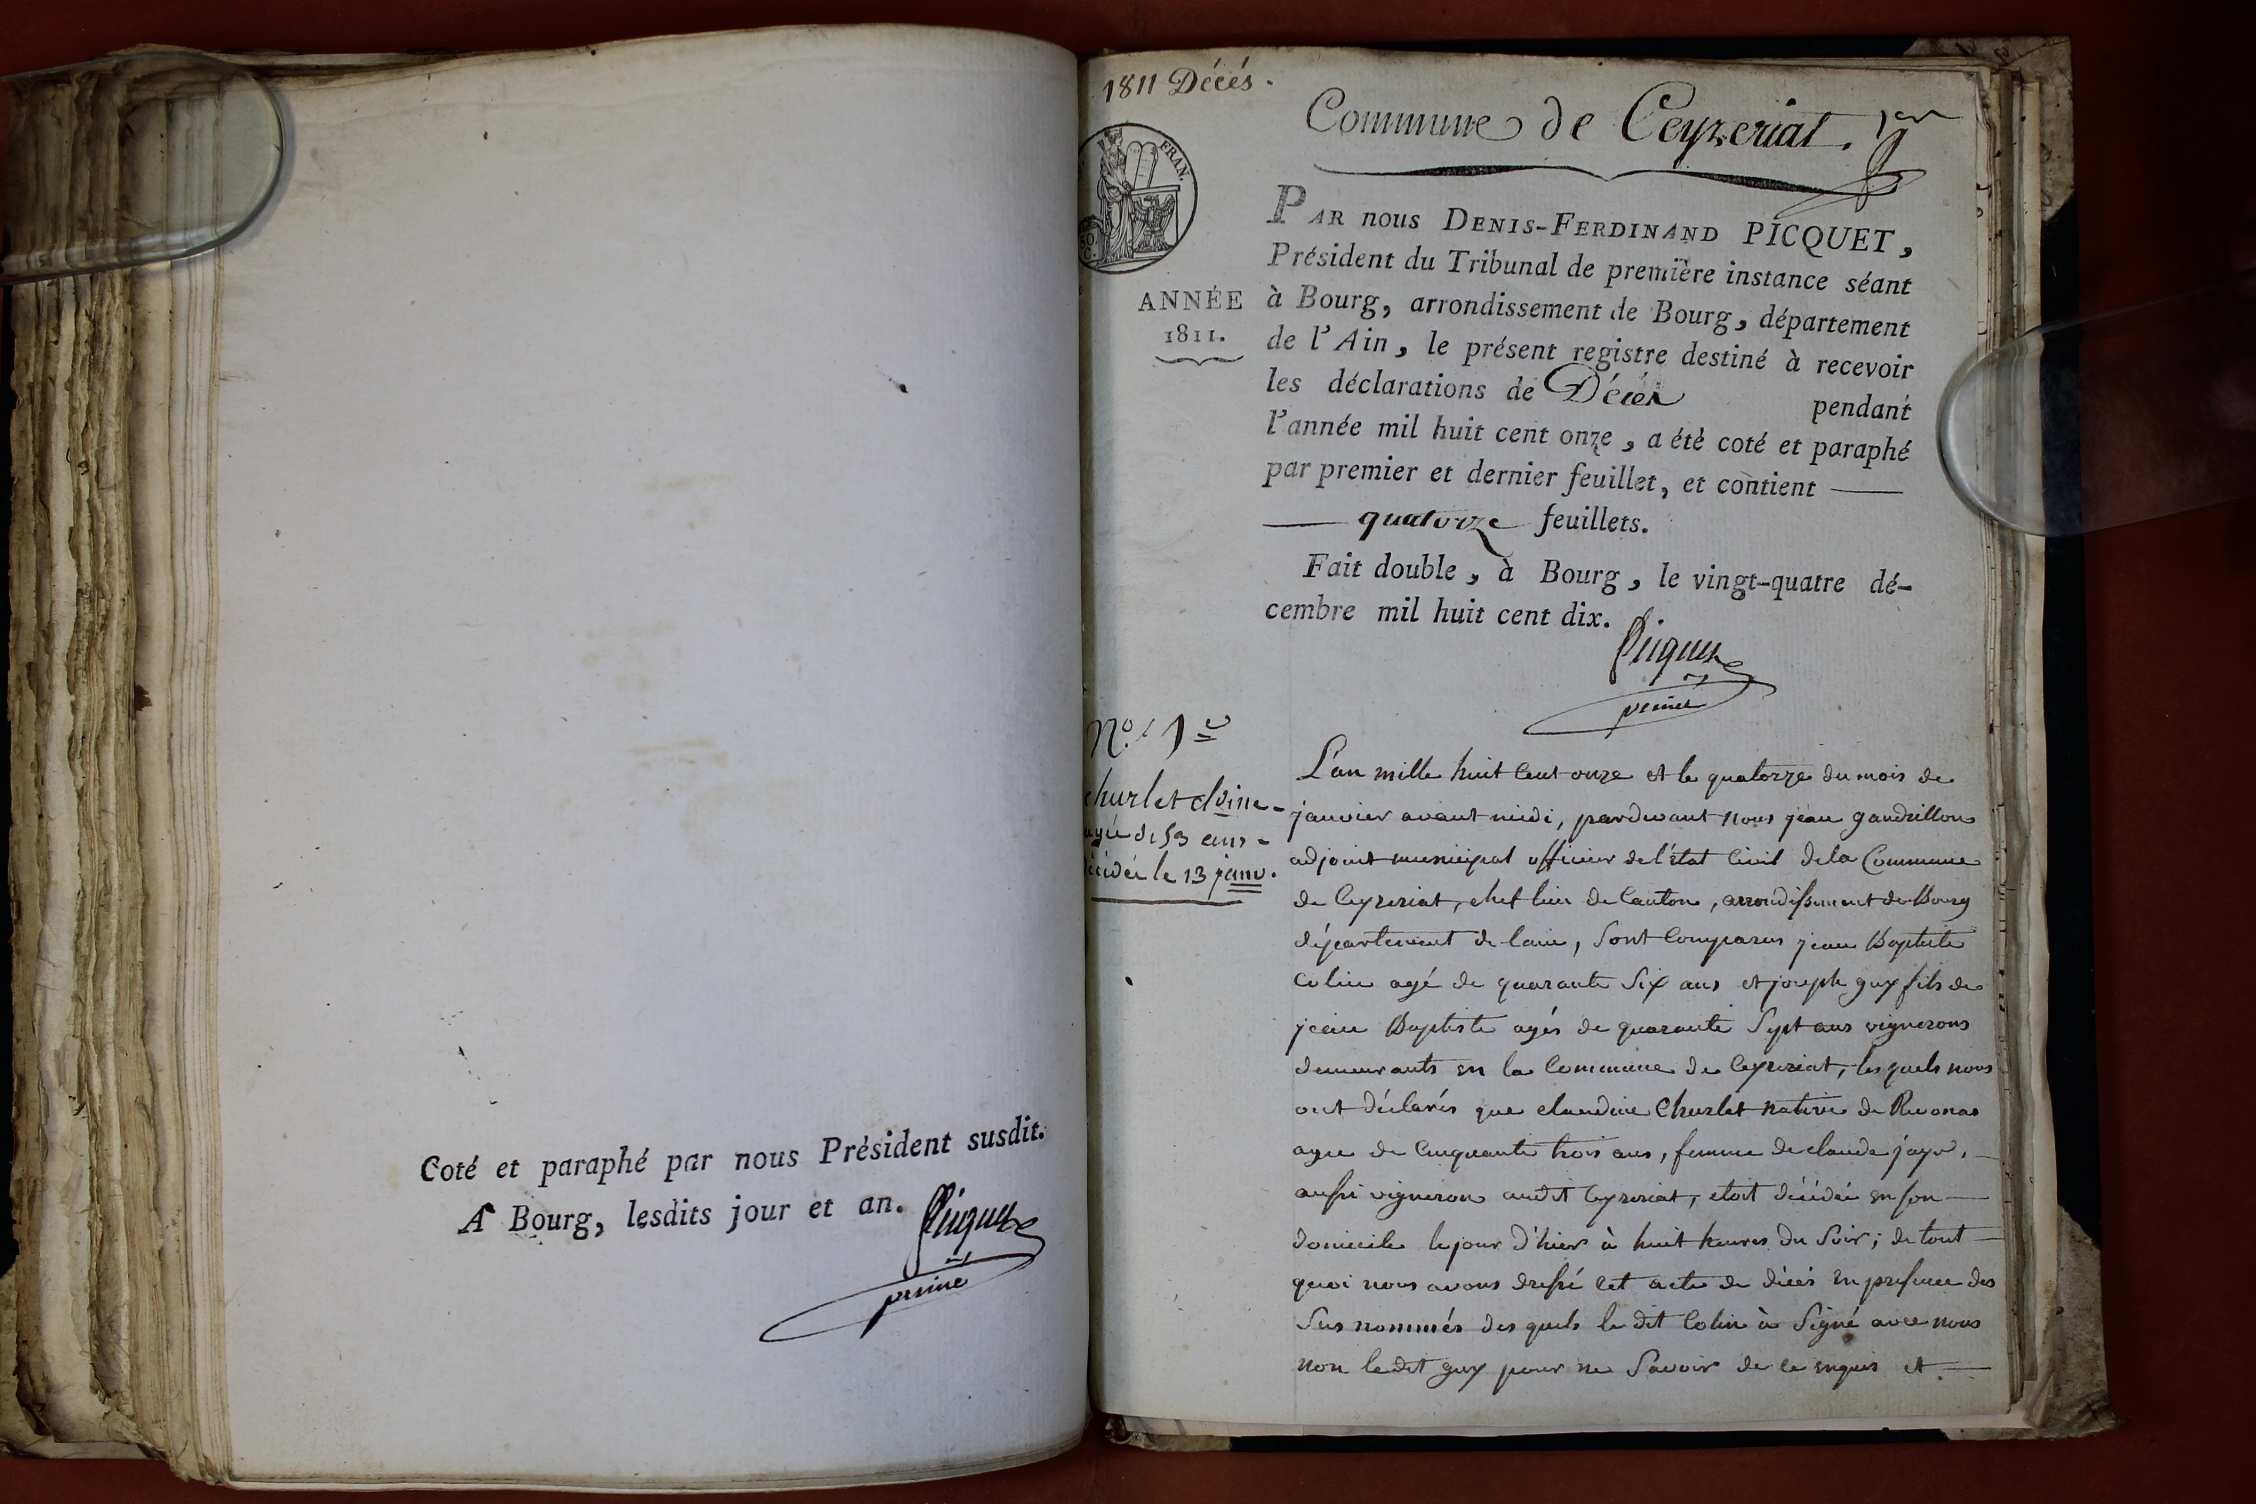 Coté et paraphé par nous Président susdit.
A Bourg, lesdits jour et an.
Picquet
1811 Décés.
Commune de Ceyzeriat. 1er
FRAN.
PAR nous DENIS-FERDINAND PICQUET,
Président du Tribunal de première instance séant
ANNÉE
1811.
à Bourg, arrondissement de Bourg, département
de l'Ain, le présent registre destiné à recevoir
les déclarations de Décès pendant
l'année mil huit cent onze, a été coté et paraphé
par premier et dernier feuillet, et contient —
— quatorze feuillets.
Fait double, à Bourg, le vingt-quatre dé-
cembre mil huit cent dix.
Picquet
No. 1er
Churlet Cldine -
agée de 53 ans -
décidée le 13 janv.
L'an mille huit cent onze et le quatorze du mois de
janvier avant midi, pardevant nous jean gandrillon
adjoint municipal officier de l'état Civil de la Commune
de Ceyzeriat, chef lieu de Canton, arrondissement de Bourg
département de lain, Sont Comparus jean Baptiste
Colin agé de quarante Six ans et joseph guy fils de
jean Baptiste agés de quarante Sept ans vignerons
demeurants en la Commune de Ceyzeriat, lesquels nous
ont déclarés que claudine Churlet native de Revonas
agée de Cinquante trois ans, femme de claude jayr, —
aussi vigneron audit Ceyzeriat, etoit décidée en son —
domicile le jour d'hier à huit heures du Soir; de tout —
quoi nous avons dressé cet acte de décés en presence des
Sus nommés des quels le dit Colin à Signé avec nous
non ledit guy pour ne Savoir de ce enquis et —